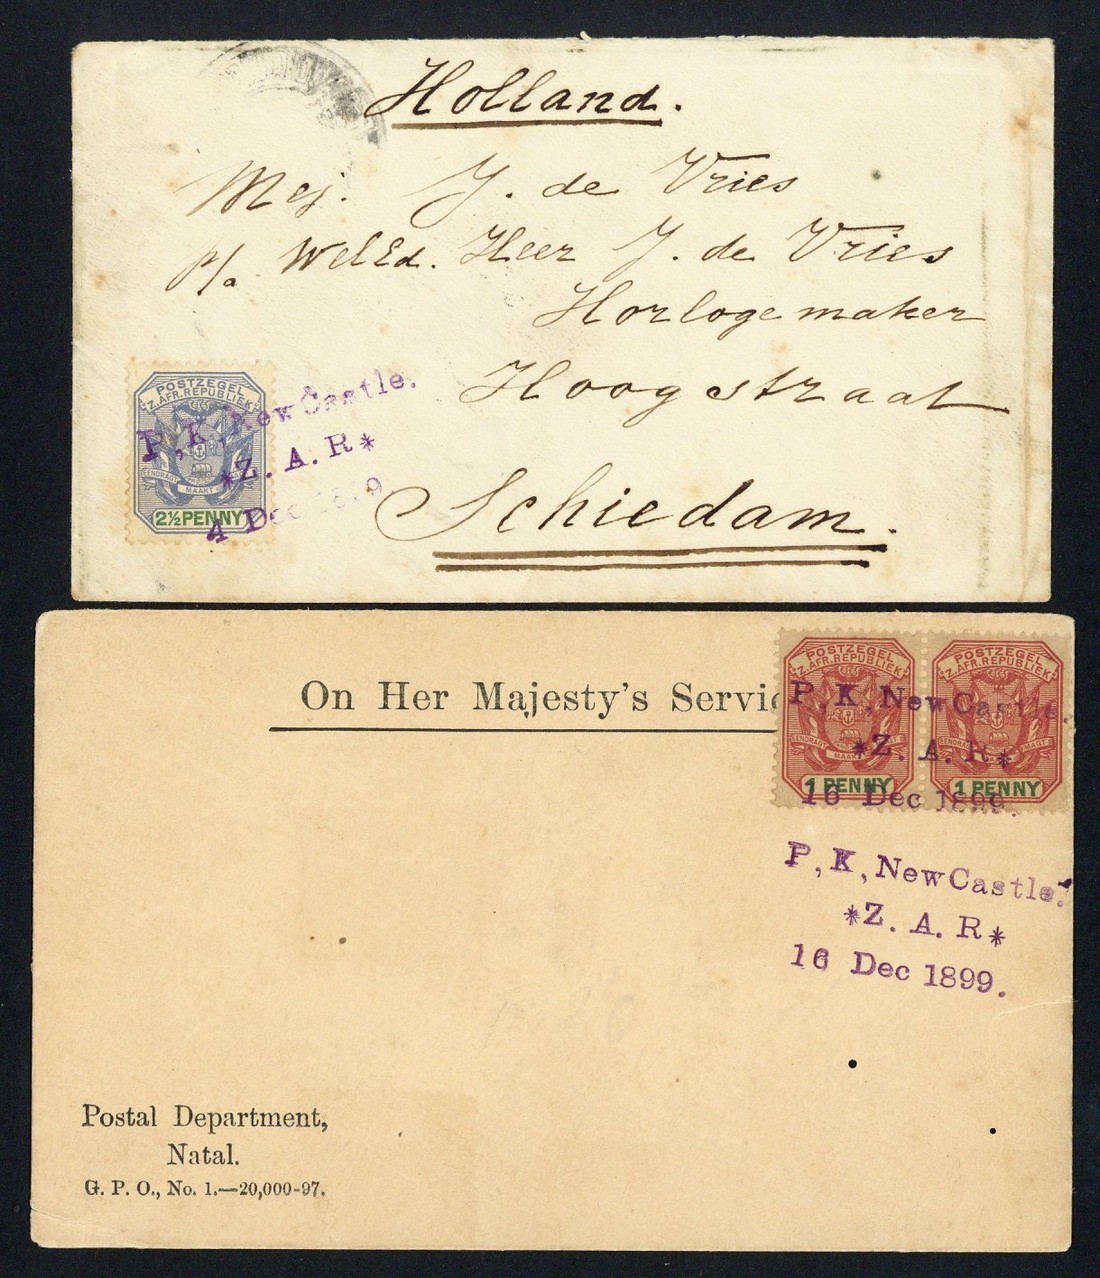 Holland.
Mej. J. de Vries
p/a. WelEd. Heer J. de Vries
Horlogemaker
Hoogstraat
Schiedam.
POSTZEGEL
Z. AFR. REPUBLIEK
EENDRAGT MAAKT
2½ PENNY
P, K, New Castle.
*Z. A. R*
4 Dec 1899
On Her Majesty's Servic
POSTZEGEL
Z. AFR. REPUBLIEK
EENDRAGT MAAKT MAGT
1 PENNY
POSTZEGEL
Z. AFR. REPUBLIEK
EENDRAGT MAAKT MAGT
1 PENNY
P, K, New Castle.
*Z. A. R*
16 Dec 1899.
P, K, New Castle.
*Z. A. R*
16 Dec 1899.
Postal Department,
Natal.
G. P. O., No. 1.—20,000-97.